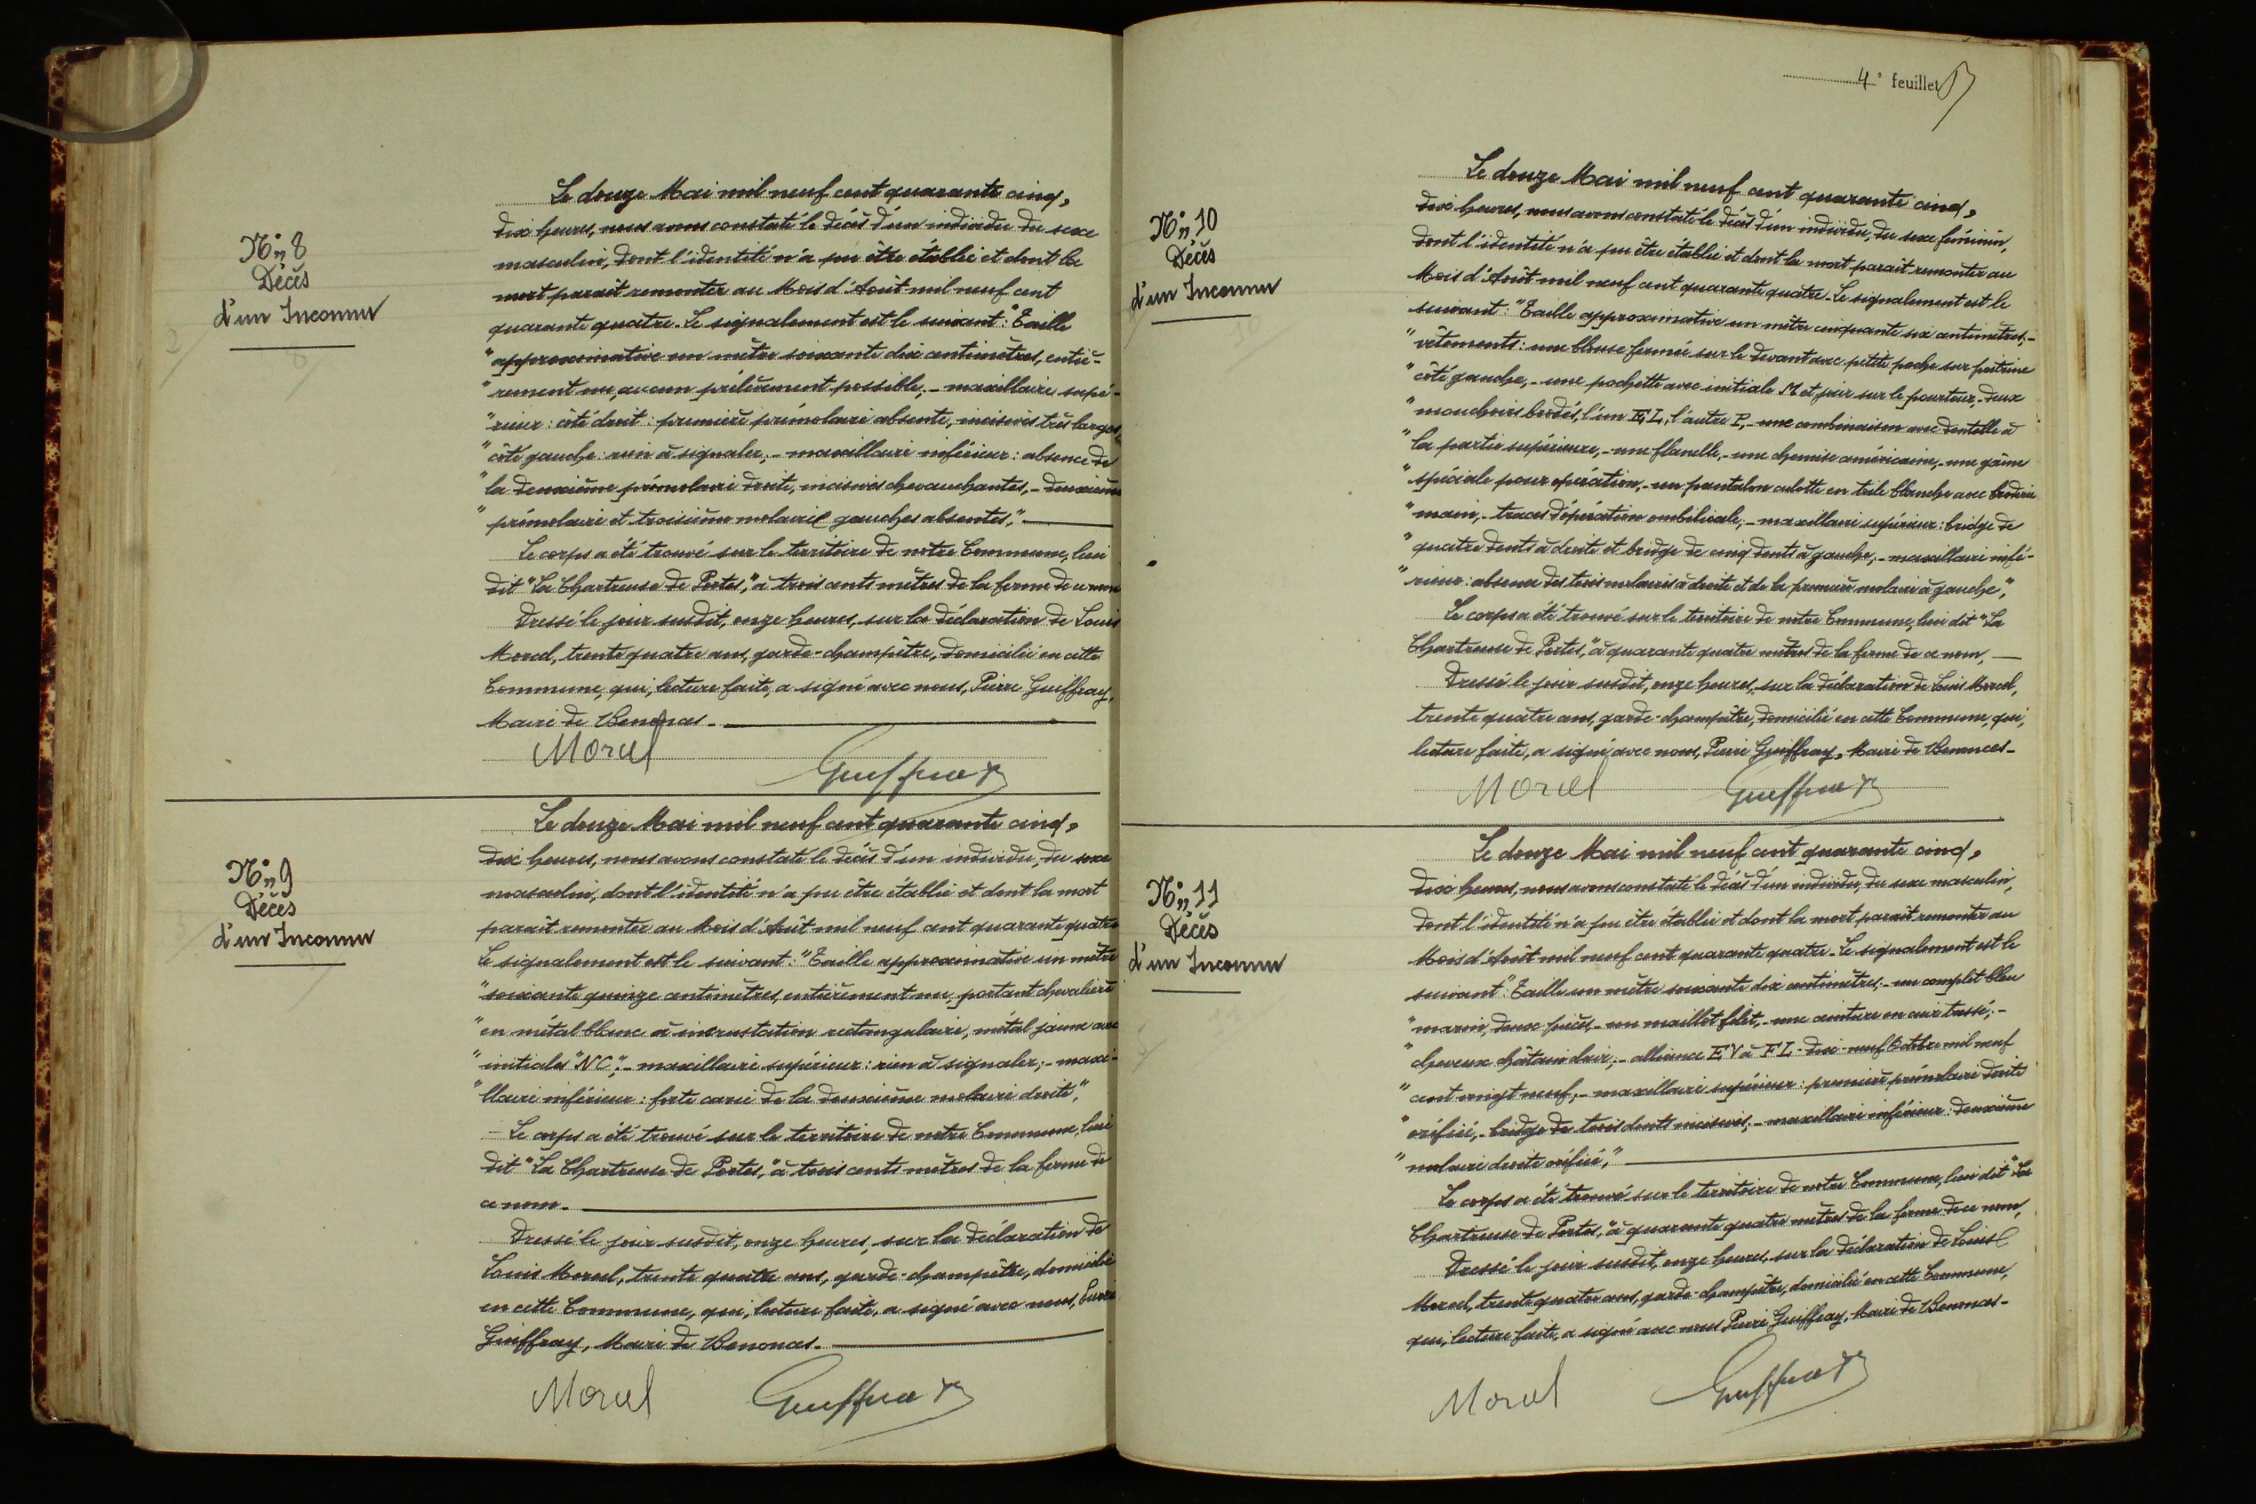 N° 8
Décès
d'un Inconnu
Le douze Mai mil neuf cent quarante cinq,
dix heures, nous avons constaté le décès d'un individu du sexe
masculin, dont l'identité n'a pu être établie et dont la
mort paraît remonter au Mois d'Août mil neuf cent
quarante quatre. Le signalement est le suivant: "Taille
"approximative un mètre soixante dix centimètres, entiè-
"rement nu, aucun prélèvement possible, - maxillaire supé-
"rieur: côté droit: première prémolaire absente, incisives très larges,
"côté gauche: rien à signaler, - maxillaire inférieur: absence de
"la deuxième prémolaire droite, incisives chevauchantes, - deuxième
"prémolaire et troisième molaire gauches absentes,"
Le corps a été trouvé sur le territoire de notre Commune, lieu
dit "La Chartreuse de Portes," à trois cents mètres de la ferme de ce nom
Dressé le jour susdit, onze heures, sur la déclaration de Louis
Morel, trente quatre ans, garde-champêtre, domicilié en cette
Commune, qui, lecture faite, a signé avec nous, Pierre Guiffray,
Maire de Benonces.
Morel Guiffray
N° 9
Décès
d'un Inconnu
Le douze Mai mil neuf cent quarante cinq,
dix heures, nous avons constaté le décès d'un individu, du sexe
masculin, dont l'identité n'a pu être établie et dont la mort
paraît remonter au Mois d'Août mil neuf cent quarante quatre
Le signalement est le suivant: "Taille approximative un mètre
"soixante quinze centimètres, entièrement nu, portant chevalière
"en métal blanc à incrustation rectangulaire, métal jaune avec
"initiales "NC", - maxillaire supérieur: rien à signaler; - maxi-
"llaire inférieur: forte carie de la deuxième molaire droite,"
- Le corps a été trouvé sur le territoire de notre Commune, lieu
dit "La Chartreuse de Portes," à trois cents mètres de la ferme de
ce nom.
Dressé le jour susdit, onze heures, sur la déclaration de
Louis Morel, trente quatre ans, garde-champêtre, domicilié
en cette Commune, qui, lecture faite, a signé avec nous, Pierre
Guiffray, Maire de Benonces.
Morel Guiffray
4e feuillet
N° 10
Décès
d'un Inconnu
Le douze Mai mil neuf cent quarante cinq,
dix heures, nous avons constaté le décès d'un individu, du sexe féminin,
dont l'identité n'a pu être établie et dont la mort paraît remonter au
Mois d'Août mil neuf cent quarante quatre. Le signalement est le
suivant: "Taille approximative un mètre cinquante six centimètres, -
"vêtements: une blouse fermée sur le devant avec petite poche sur poitrine
"côté gauche, - une pochette avec initiale M et jour sur le pourtour, - deux
"mouchoirs brodés, l'un E L, l'autre P, - une combinaison avec dentelle à
"la partie supérieure, - une flanelle, - une chemise américaine, - une gaine
"spéciale pour opération, - un pantalon culotte en toile blanche avec broderie
"main, - traces d'opération ombilicale, - maxillaire supérieur: bridge de
"quatre dents à droite et bridge de cinq dents à gauche, - maxillaire infé-
"rieur: absence des trois molaires à droite et de la première molaire à gauche,"
Le corps a été trouvé sur le territoire de notre Commune, lieu dit "La
Chartreuse de Portes," à quarante quatre mètres de la ferme de ce nom,
Dressé le jour susdit, onze heures, sur la déclaration de Louis Morel,
trente quatre ans, garde-champêtre, domicilié en cette Commune, qui,
lecture faite, a signé avec nous, Pierre Guiffray, Maire de Benonces.
Morel Guiffray
N° 11
Décès
d'un Inconnu
Le douze Mai mil neuf cent quarante cinq,
dix heures, nous avons constaté le décès d'un individu, du sexe masculin,
dont l'identité n'a pu être établie et dont la mort paraît remonter au
Mois d'Août mil neuf cent quarante quatre. Le signalement est le
suivant: "Taille un mètre soixante dix centimètres, - un complet bleu
"marin, deux pièces, - un maillot filet, - une ceinture en cuir tressé, -
"cheveux châtain clair; - alliance E V à F L - dix-neuf Octobre mil neuf
"cent vingt neuf, - maxillaire supérieur: première prémolaire droite
"orifiée, - bridge de trois dents incisives; - maxillaire inférieur: deuxième
"molaire droite orifiée,"
Le corps a été trouvé sur le territoire de notre Commune, lieu dit "La
Chartreuse de Portes," à quarante quatre mètres de la ferme de ce nom,
Dressé le jour susdit, onze heures, sur la déclaration de Louis
Morel, trente quatre ans, garde-champêtre, domicilié en cette Commune,
qui, lecture faite, a signé avec nous Pierre Guiffray, Maire de Benonces.
Morel Guiffray